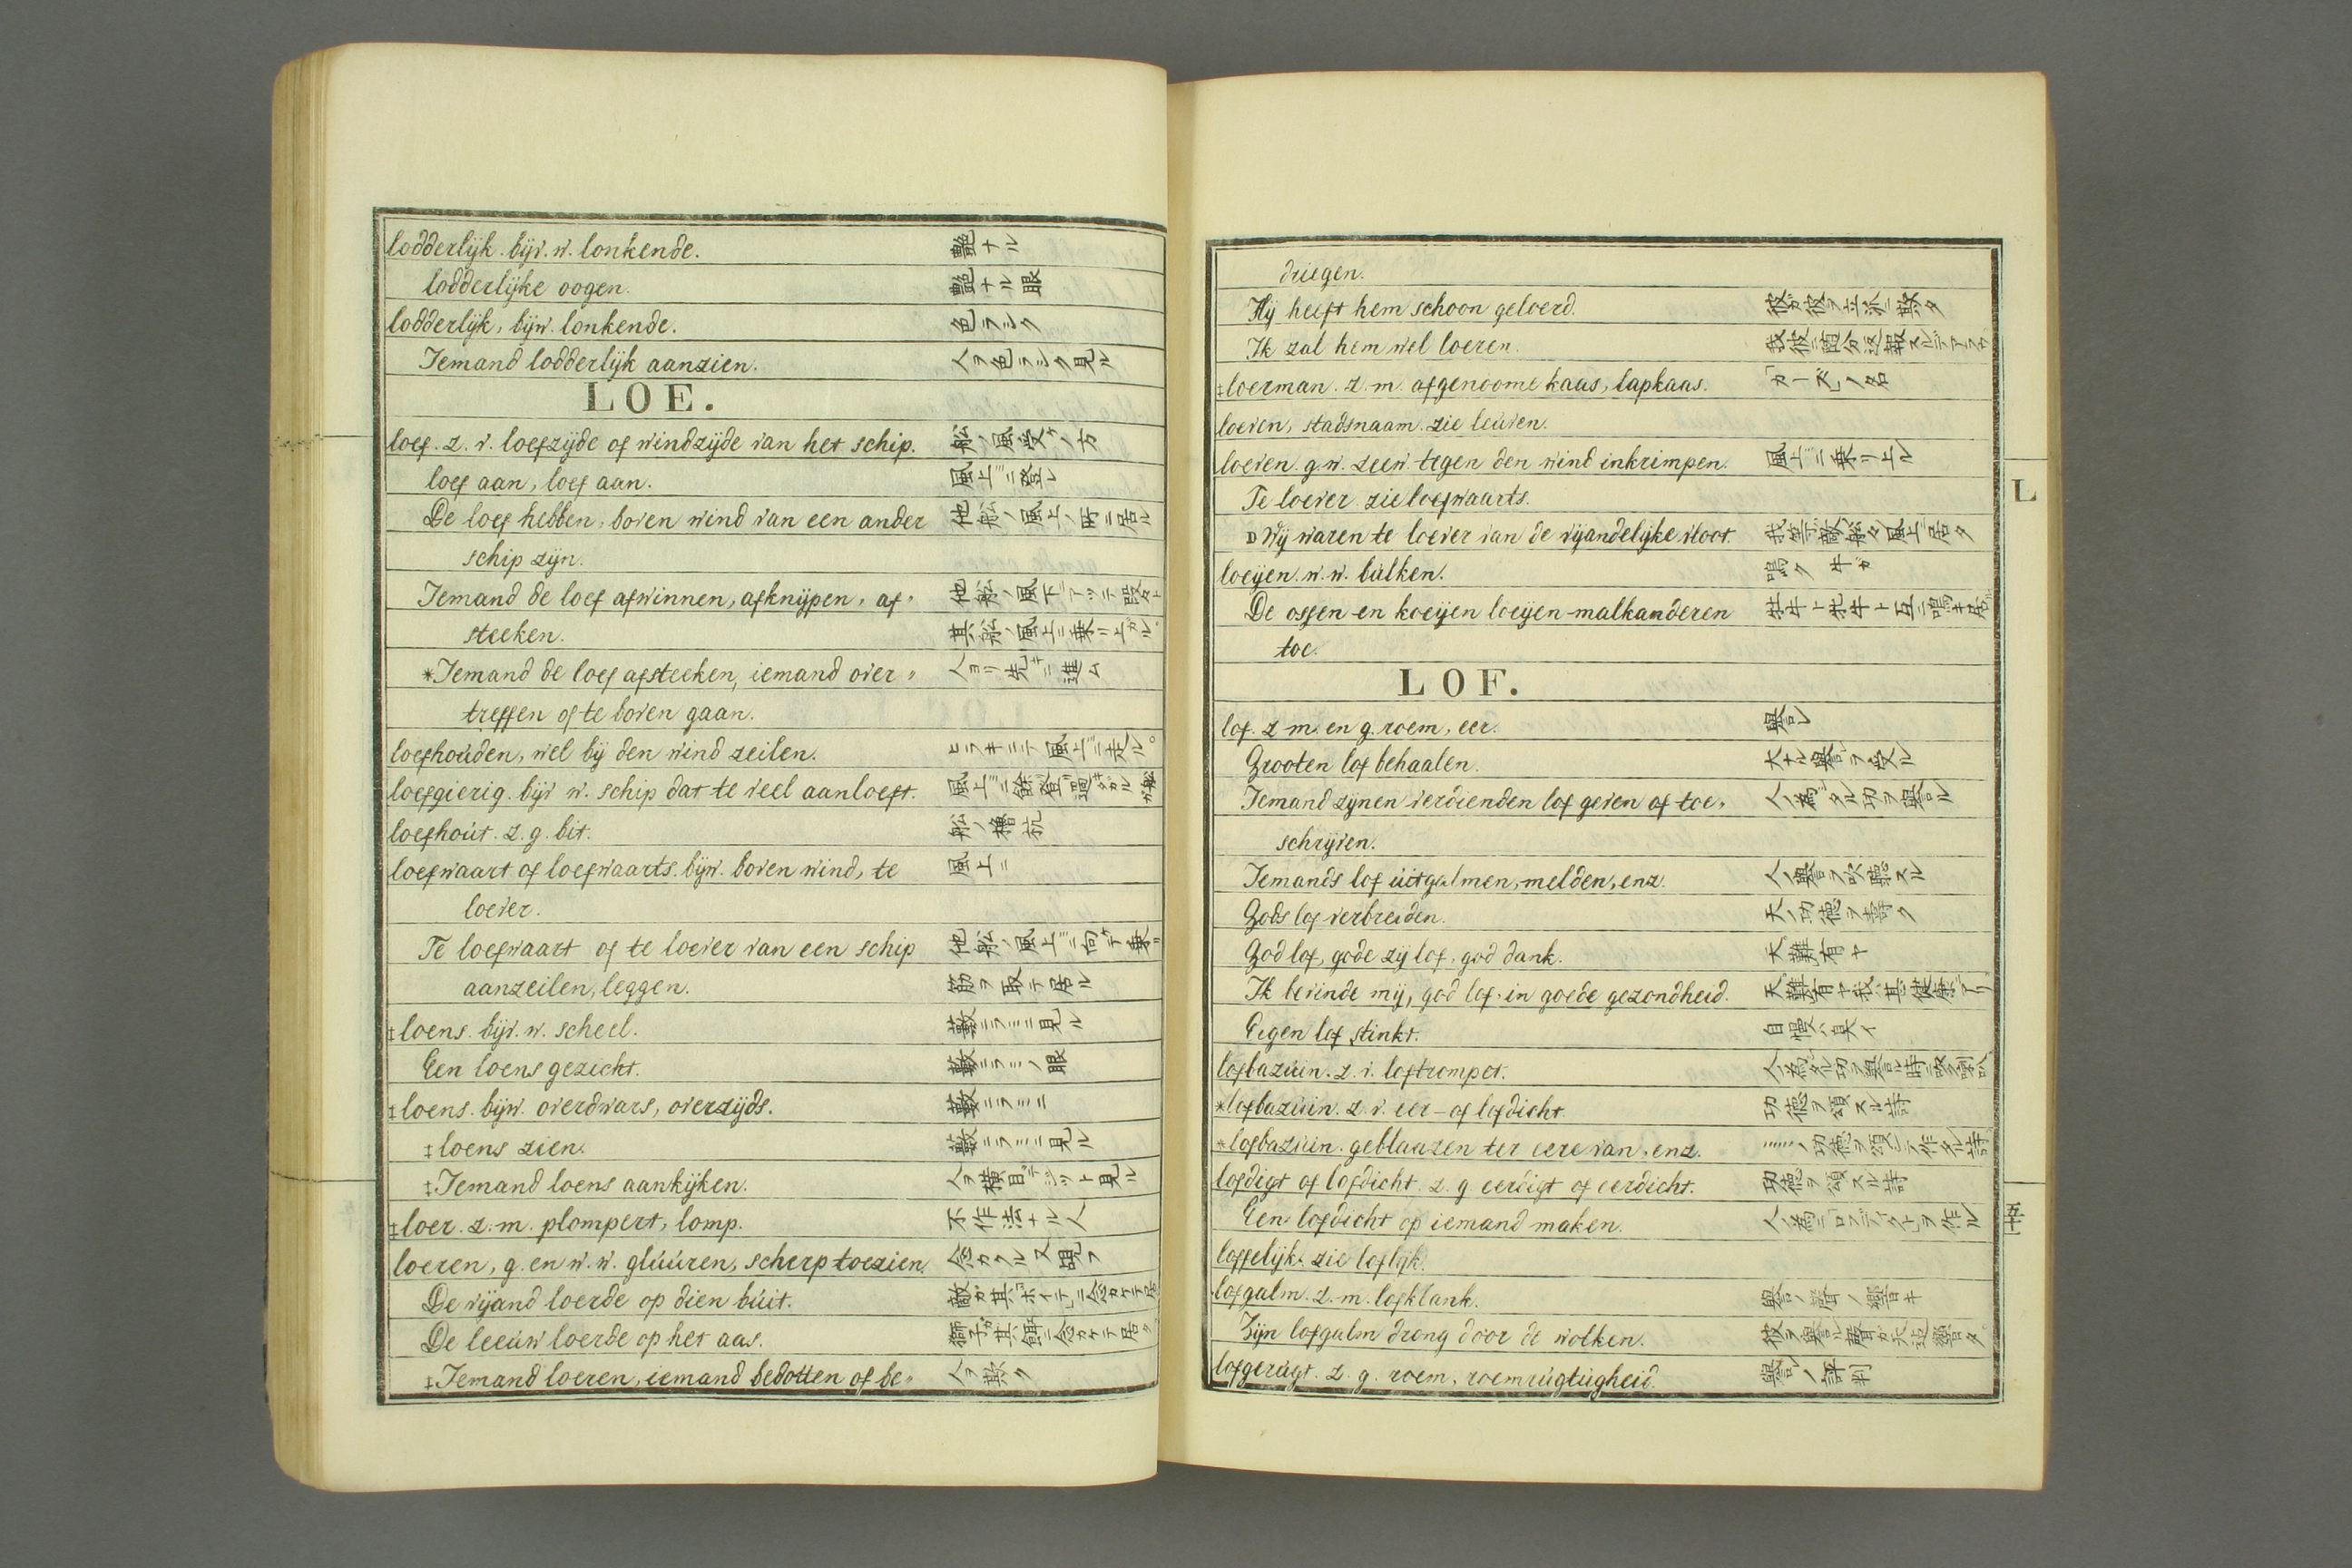 lodderlijk. bijv. w. lonkende. 艶ナル
lodderlijke oogen. 艶ナル眼
lodderlijk, bijw. lonkende. 色ラシク
Iemand lodderlijk aanzien. 人ヲ色ラシク見ル
LOE.
loef. z. v. loefzijde of windzijde van het schip. 舩ノ風受ケノ方
loef aan, loef aan. 風上ミニ登レ
De loef hebben, boven wind van een ander 他舩ノ風上ノ所ニ居ル
schip zijn.
Iemand de loef afwinnen, afknijpen, af〃 他舩ノ風下ニアツテ段々ト
steeken. 其舩ノ風上ニ乗リ上ガル
*Iemand de loef afsteeken, iemand over〃 人ヨリ先キニ進ム
treffen of te boven gaan.
loefhoúden, wel bij den wind zeilen. ヒラキニテ風上ミニ走ル。
loefgierig. bijv w. schip dat te veel aanloeft. 風上ミニ餘リ登リ過キタガル舩
loefhoút. z. g. bit. 舩ノ櫓杭
loefwaart of loefwaarts. bijw. boven wind, te 風上ニ
loever.
Te loefwaart of te loever van een schip 他舩ノ風上ミニ向ケテ乗リ
aanzeilen, leggen. 筋ヲ取テ居ル
‡loens. bijv. w. scheel. 藪ニラミニ見ル
Een loens gezicht. 藪ニラミノ眼
‡loens. bijw. overdwars, overzijds. 藪ニラミニ
‡loens zien. 藪ニラミニ見ル
‡Iemand loens aankijken. 人ヲ横目デジット見ル
‡loer. z. m. plompert, lomp. 不作法ナル人
loeren, g. en w. w. glúúren, scherp toezien. 念カクル又覗フ
De vijand loerde op dien búit. 敵ガ其「ボイト」ニ念カケテ居
De leeúw loerde op het aas. 獅子ガ其餌ニ念カケテ居タ
‡Iemand loeren, iemand bedotten of be〃 人ヲ欺ク
driegen.
Hij heeft hem schoon geloerd. 彼ガ彼ヲ立派ニ欺タ
Ik zal hem wel loeren. 我彼ニ随分返報スルデアラウ
‡loerman. z. m. afgenoome kaas, lapkaas. 「カース」ノ名
loeven, stadsnaam. zie leúven.
loeven. g. w. zeew. tegen den wind inkrimpen. 風上ミニ乗リ上ル
Te loever zie loefwaarts.
D Wij waren te loever van de vijandelijke vloot. 我等ガ敵舩ノ風上ニ居タ
loeijen. w. w. búlken. 鳴ク 牛ガ
De ossen en koeijen loeijen malkanderen 牡牛ト牝牛ト互ニ鳴キ居ル
toe.
LOF.
lof. z m. en g. roem, eer. 譽レ
Grooten lof behaalen. 大ナル譽レヲ受ル
Iemand zijnen verdienden lof geven of toe〃 人ノ為シタル功ヲ譽ル
schrijven.
Iemands lof úitgalmen, melden, enz. 人ノ譽ヲ吹聴スル
Gods lof verbreiden. 天ノ功徳ヲ壽ク
God lof, gode zij lof, god dank. 天難有ヤ
Ik bevinde mij, god lof, in goede gezondheid. 天難有ヤ我ハ甚健康デアリ
Eigen lof stinkt. 自慢ハ臭イ
lofbazúin. z. v. loftrompet. 人ノ為タル功ヲ譽ル時ニ吹ク喇叭
*lofbazúin. z. v. eer- of lofdicht. 功徳ヲ頌スル詩
*lofbazúin. geblaazen ter eere van, enz. ……ノ功徳ヲ頌シテ作タル詩
lofdigt of lofdicht. z. g. eerdigt of eerdicht. 功徳ヲ頌スル詩
Een lofdicht op iemand maken. 人ノ為ニ「ロフヂクト」ヲ作ル
loffelijk. zie loflijk.
lofgalm. z. m. lofklank. 譽ノ聲ノ響キ
Zijn lofgalm drong door de wolken. 彼ヲ譽ル聲ガ天迄響タ。
lofgerúgt. z. g. roem, roemrúgtigheid. 譽レノ評判
L